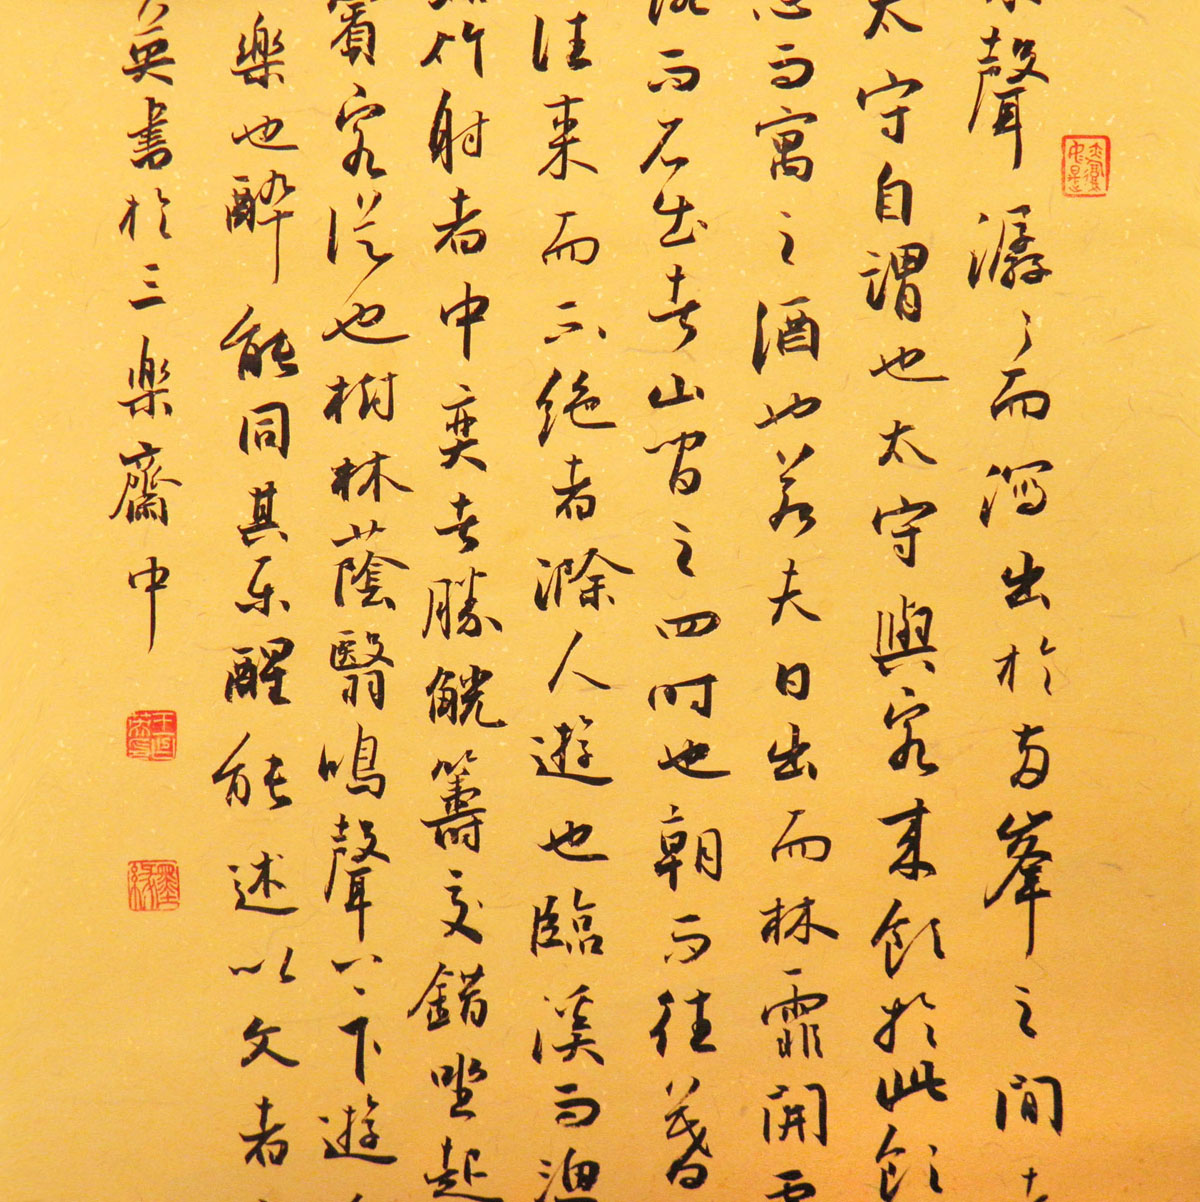 聲潺〻而瀉出於兩峯之間
太守自謂也太守與客來飲於此飲
心而寓之酒也若夫日出而林霏開
落而石出者山間之四時也朝而往暮
往來而不絕者滁人遊也臨溪而漁
竹射者中奕者勝觥籌交錯坐起
賓客從也樹林蔭翳鳴聲上下遊
樂也醉能同其樂醒能述以文者
英書於三樂齋中
墨緣